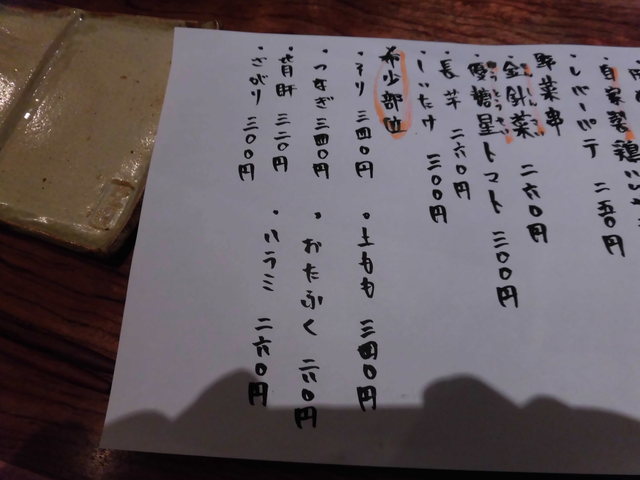 自家製鶏ハ
二五〇円
・レバーパテ
野菜串
・金針菜 二六〇円
きんしんさい
・優糖星トマト 三〇〇円
ゆうとうせい
・長芋 二六〇円
・しいたけ 三〇〇円
希少部位
・ソリ 三四〇円
・上もも 三四〇円
・つなぎ 三四〇円
・おたふく 二六〇円
・背肝 三二〇円
・ハラミ 二六〇円
・さがり 三〇〇円